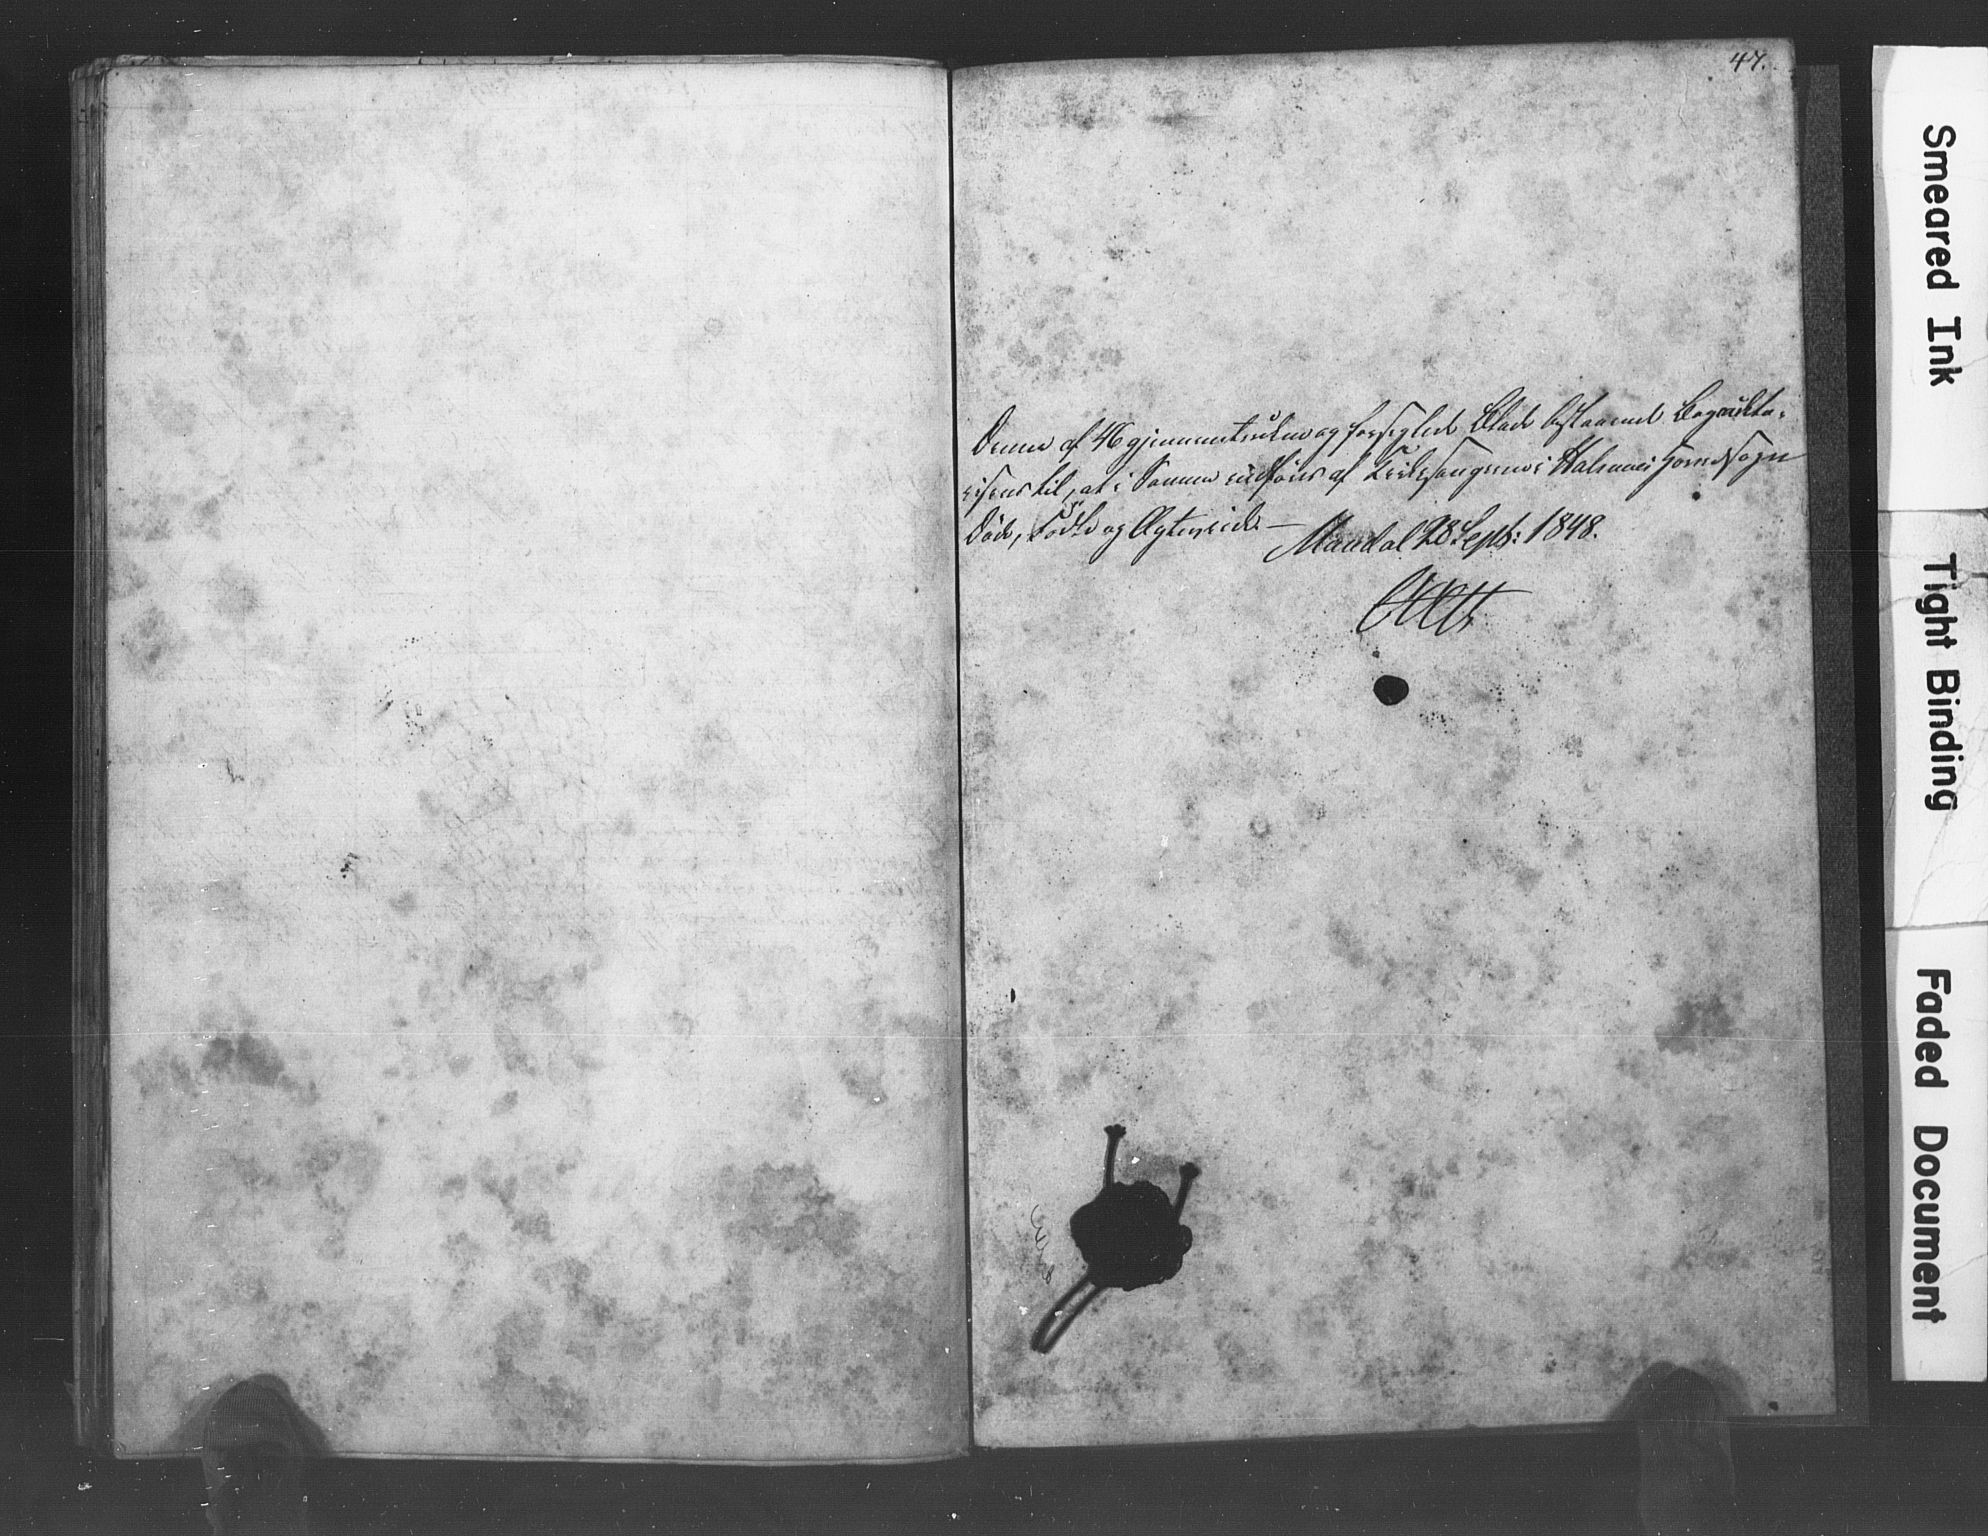 47.
Denne af 46 gjennemtrukne og forseglede Blade bestaaende Bog
til, at i Samme indføres af Kirkesangeren i Halsaae Hovedsogn
Døde, Fødte og Ægteviede. —
Mandal 28 Sept: 1848.
Smeared Ink
Tight Binding
Faded Document